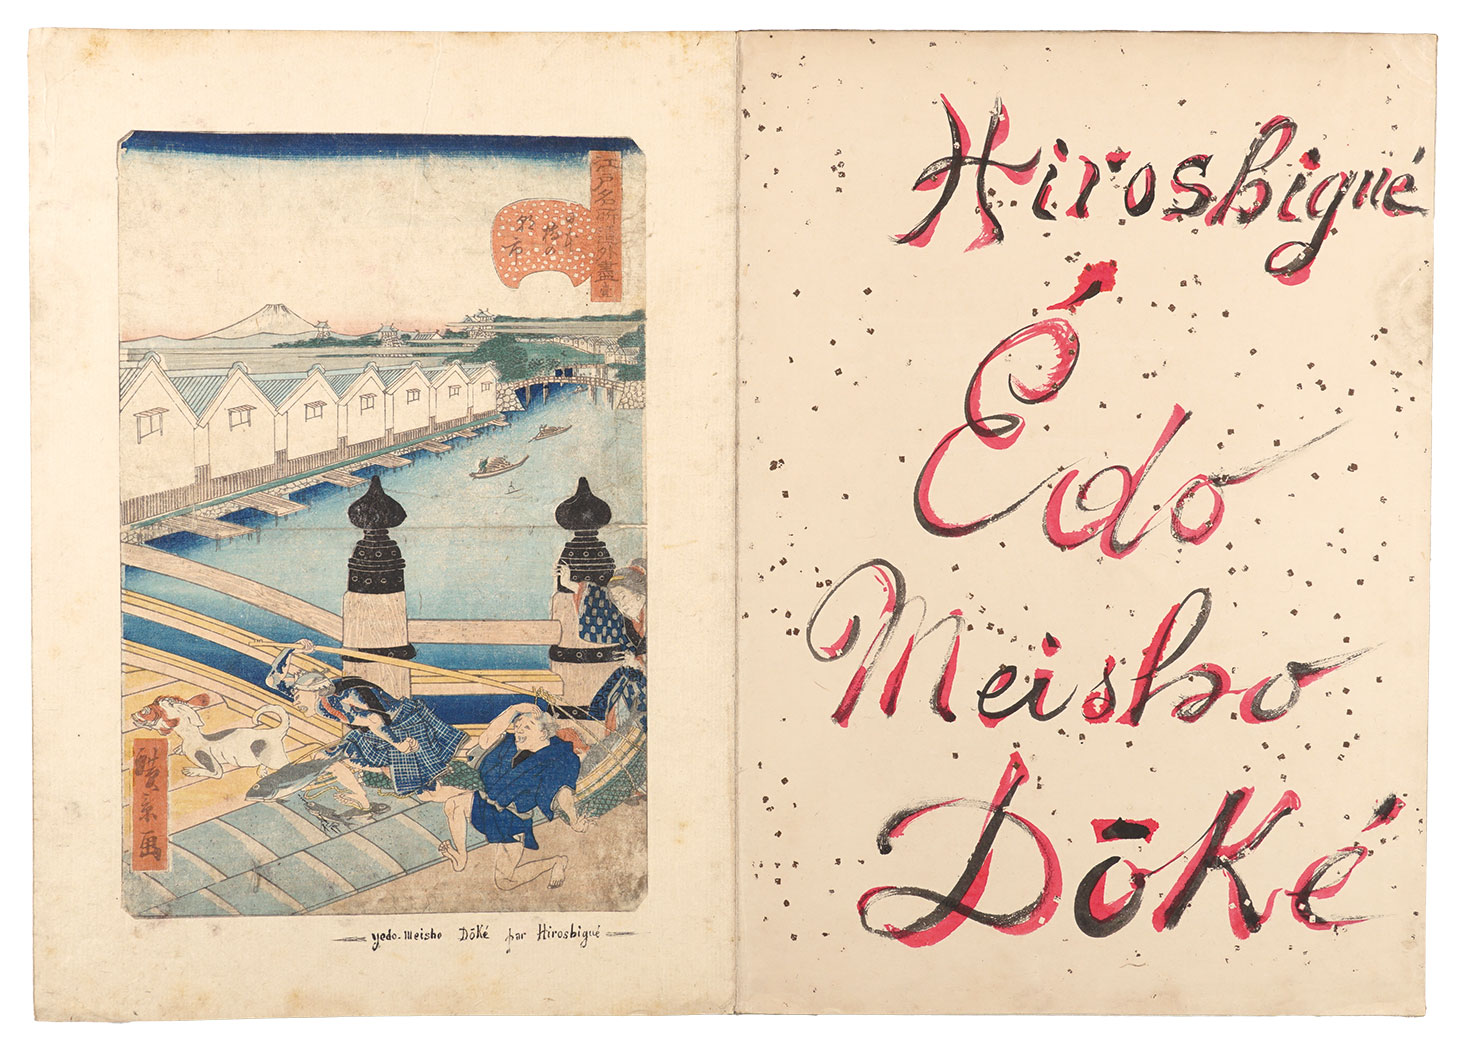 江戸名所道外盡 壹
日本
橋の
朝市
廣景画
yedo-meisho Dōké par Hiroshigué
Hiroshigué
Édo
Meisho
Dōké